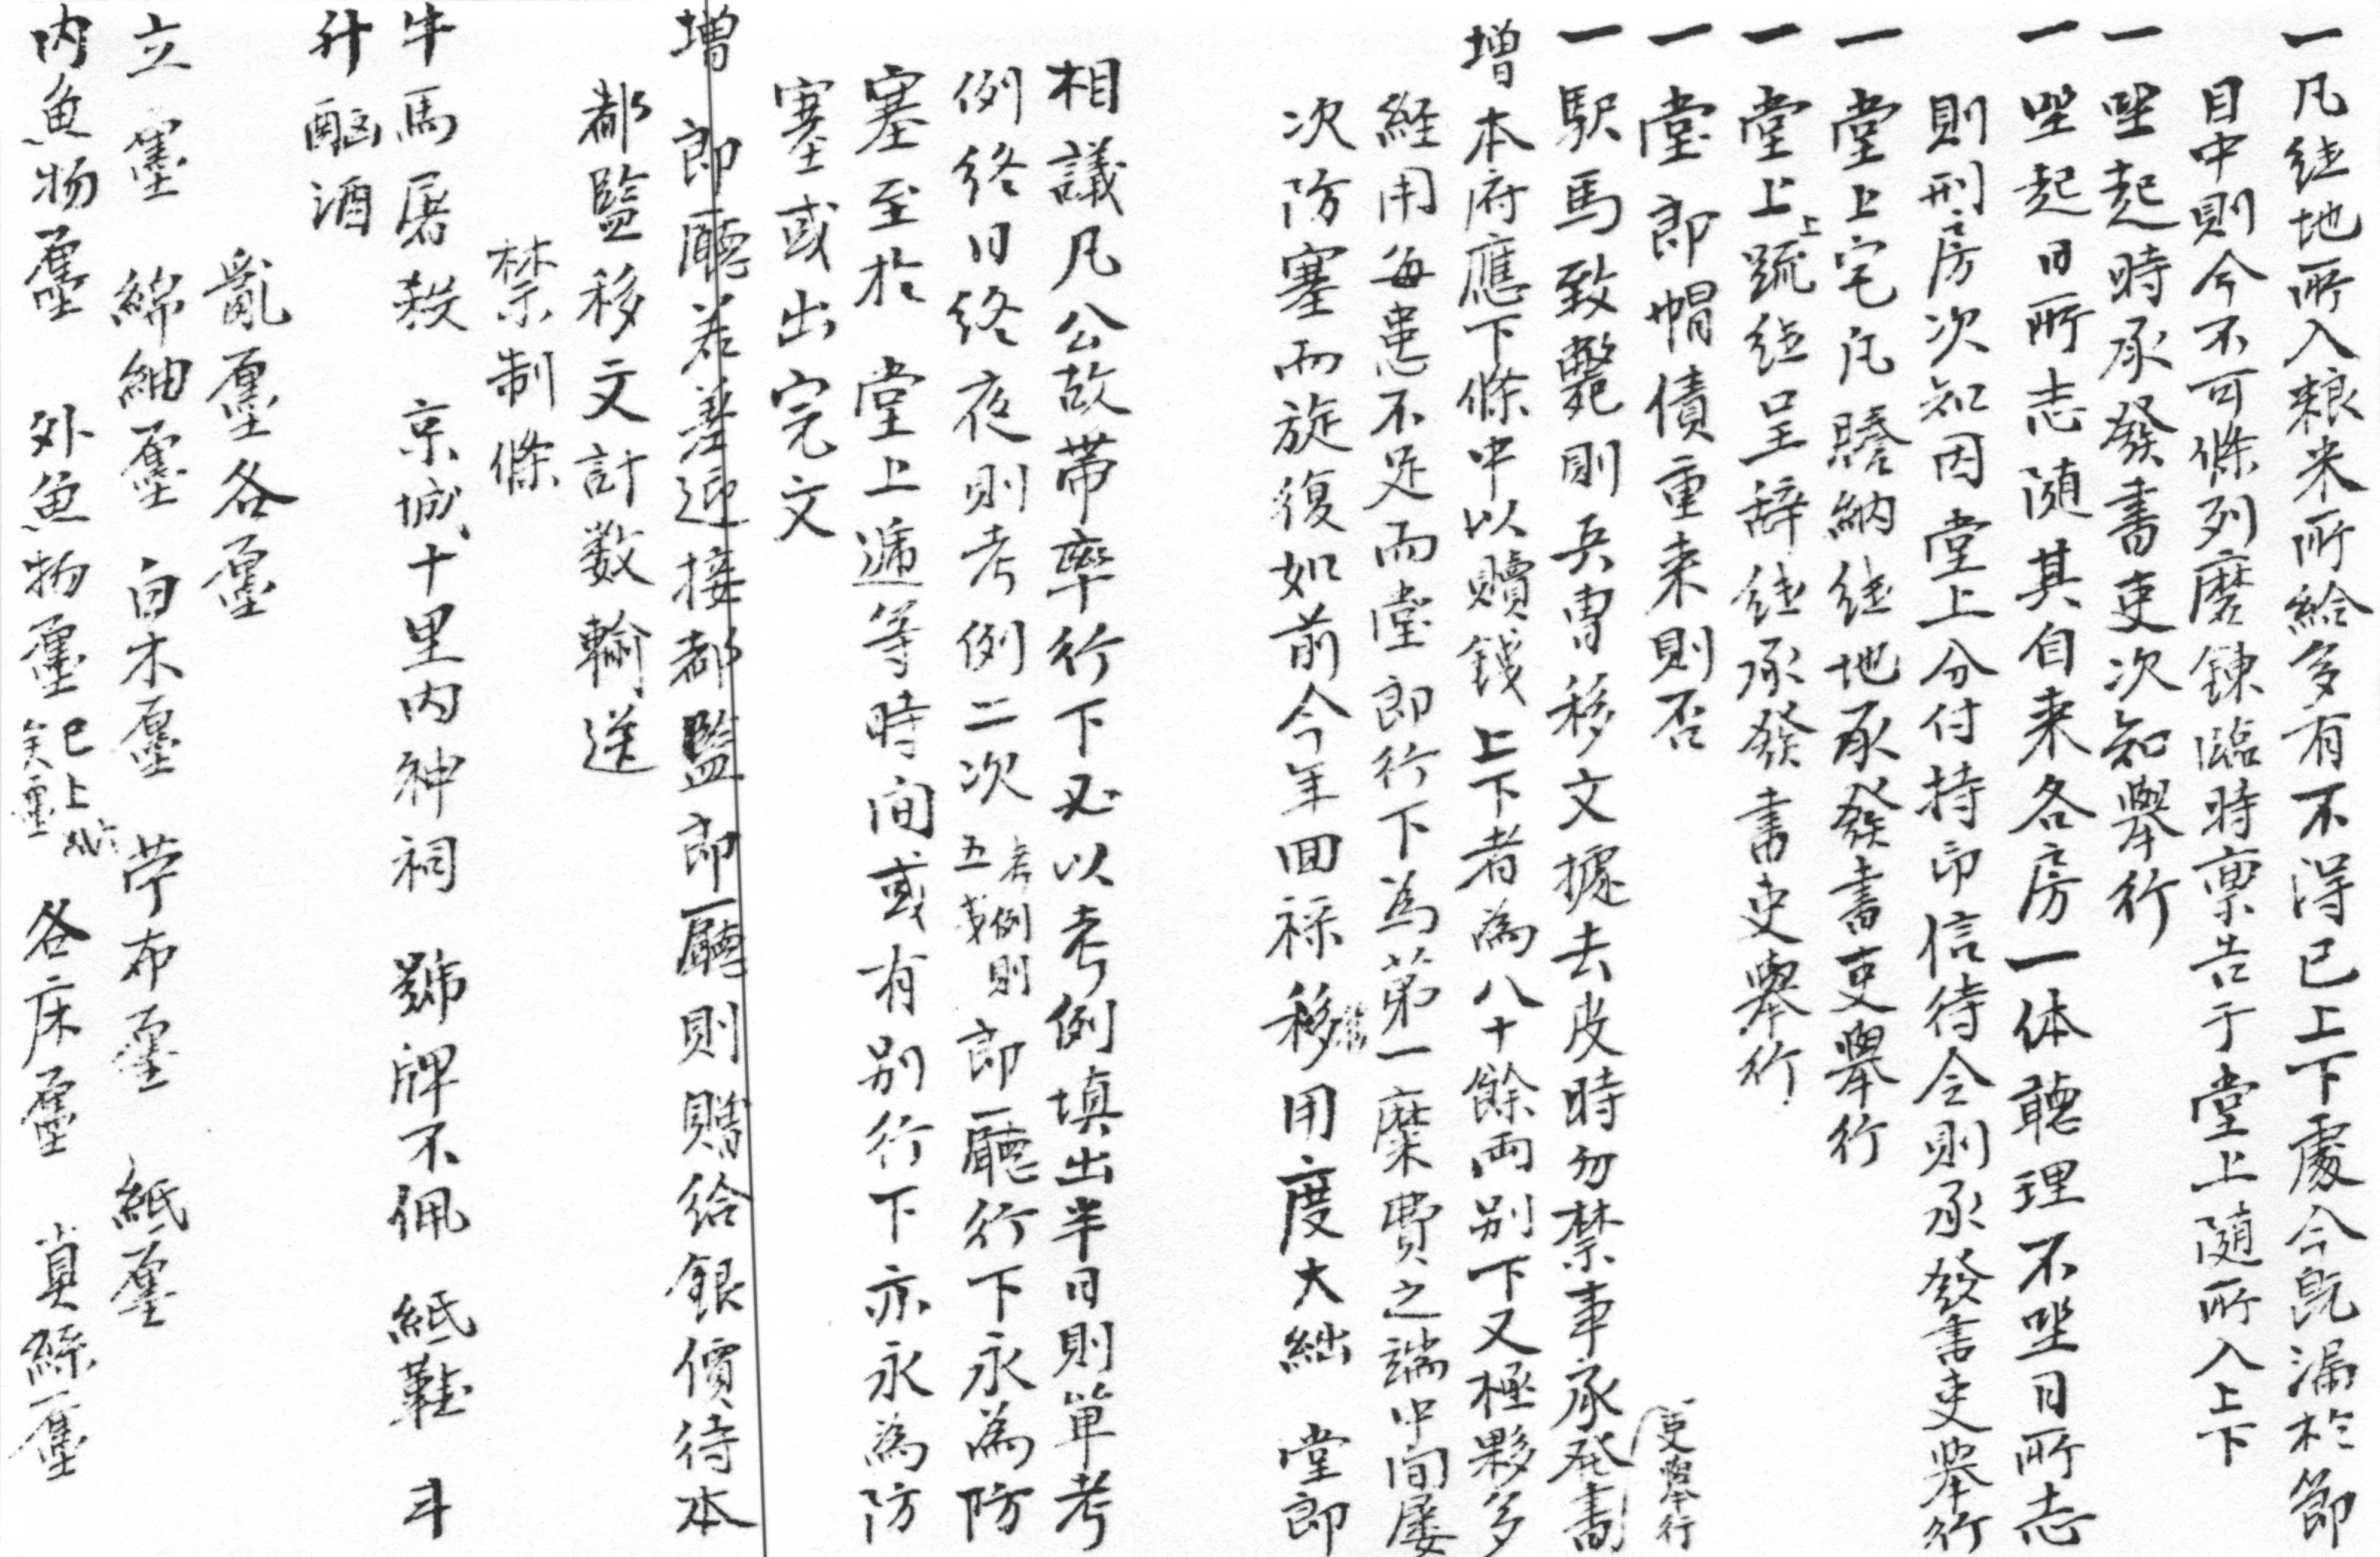 一凡紙地所入粮米所給多有不得已上下處今旣漏於節
目中則今不可條列磨鍊臨時稟告于堂上随所入上下
一坐起時承發書吏次知擧行
一坐起日所志随其自来各房一体聴理不坐日所志
則刑房次知因堂上分付持印信待令則承發書吏擧行
一堂上宅凡謄納紙地承發書吏擧行
一堂上上疏紙呈辞紙承發書吏擧行
一堂郎帽債重来則否
一馹馬致斃則兵曹移文據去皮時勿禁事承発書
吏擧行
增本府應下條中以贖錢上下者為八十餘両别下又極夥多
經用每患不足而堂郎行下為第一糜費之端中間屡
次防塞而旋復如前今年回禄移用度大絀 堂郎
相議凡公故帶率行下必以考例填出半日則單考
例終日終夜則考例二次考例則五戔郎廳行下永為防
塞至於 堂上遞等時間或有别行下亦永為防
塞或出完文
增 郎廳差迎接都監郎廳則贈給銀價待本
都監移文計数輸送
禁制條
牛馬屠殺 京城十里内神祠 號牌不佩 紙鞋 斗
升 酗酒
亂廛各廛
立廛 綿紬廛 白木廛 苧布廛 紙廛
内魚物廛 外魚物廛已上六矣廛 各床廛 真絲廛